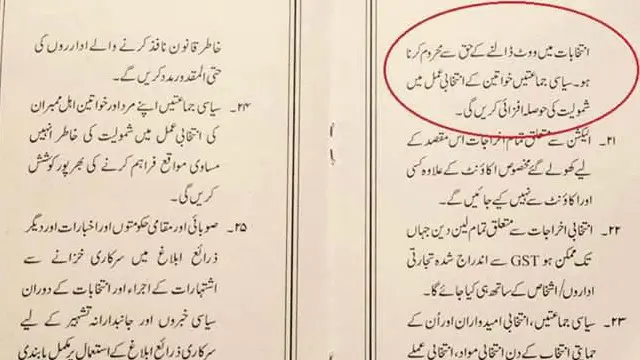 انتخابات میں ووٹ ڈالنے کے حق سے محروم کرنا
ہو۔ سیاسی جماعتیں خواتین کے انتخابی عمل میں
شمولیت کی حوصلہ افزائی کریں گی۔
۲۱۔ الیکشن سے متعلق تمام اخراجات اس مقصد کے
لیے کھولے گئے مخصوص اکاؤنٹ کے علاوہ کسی
اور اکاؤنٹ سے نہیں کیے جائیں گے۔
۲۲۔ انتخابی اخراجات سے متعلق تمام لین دین جہاں
تک ممکن ہو GST سے اندراج شدہ تجارتی
اداروں/اشخاص کے ساتھ ہی کیا جائے گا۔
۲۳۔ سیاسی جماعتیں، انتخابی امیدواران اور اُن کے
حمایتی انتخاب کے دن انتخابی مواد، انتخابی عملے
خاطر قانون نافذ کرنے والے اداروں کی
حتی المقدور مدد کریں گے۔
۲۴۔ سیاسی جماعتیں اپنے مرد اور خواتین اہل ممبران
کی انتخابی عمل میں شمولیت کی خاطر انہیں
مساوی مواقع فراہم کرنے کی بھرپور کوشش
کریں گی۔
۲۵۔ صوبائی اور مقامی حکومتوں اور اخبارات اور دیگر
ذرائع ابلاغ میں سرکاری خزانے سے
اشتہارات کے اجراء اور انتخابات کے دوران
سیاسی خبروں اور جانبدارانہ تشہیر کے لیے
سرکاری ذرائع ابلاغ کے استعمال پر مکمل پابندی